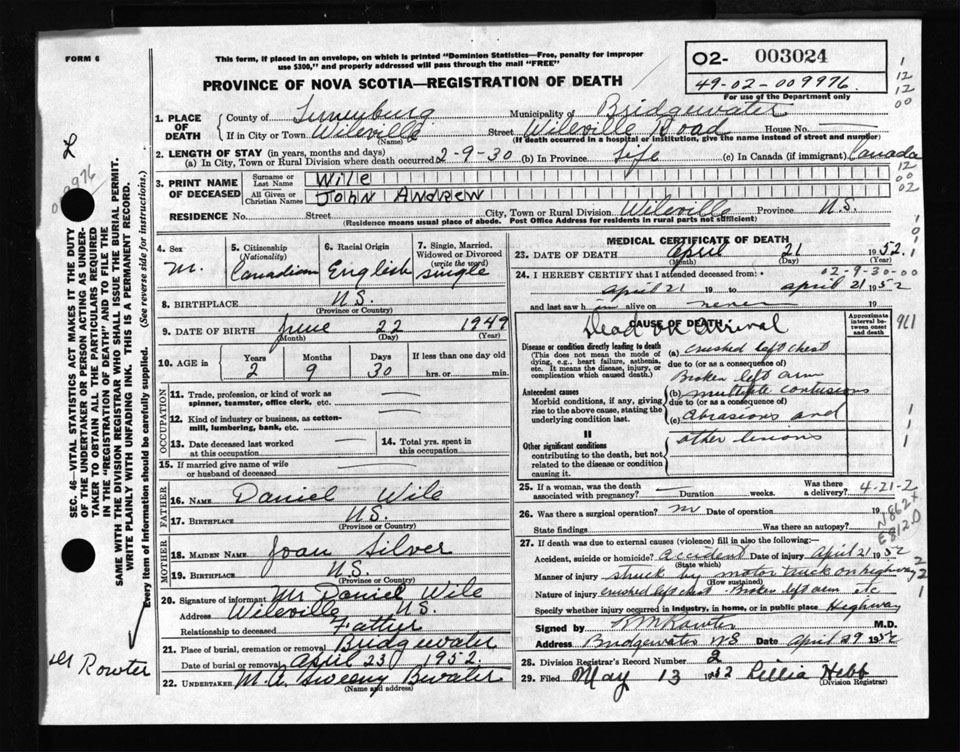 FORM 6
This form, if placed in an envelope, on which is printed "Dominion Statistics—Free, penalty for improper
use $300," and properly addressed will pass through the mail "FREE"
PROVINCE OF NOVA SCOTIA—REGISTRATION OF DEATH
O2- 003024
49-02-009976.
For use of the Department only
1. PLACE OF DEATH
County of Lunenburg Municipality of Bridgewater
If in City or Town Wileville Street Wileville Road House No. —
(Name) (If death occurred in a hospital or institution, give the name instead of street and number)
2. LENGTH OF STAY (in years, months and days)
(a) In City, Town or Rural Division where death occurred 2-9-30 (b) In Province Life (c) In Canada (if immigrant) Canada
3. PRINT NAME OF DECEASED
Surname or Last Name Wile
All Given or Christian Names John Andrew
RESIDENCE No. Street City, Town or Rural Division Wileville Province N.S.
(Residence means usual place of abode. Post Office Address for residents in rural parts not sufficient)
4. Sex M.
5. Citizenship (Nationality) Canadian
6. Racial Origin English
7. Single, Married, Widowed or Divorced (write the word) single
8. BIRTHPLACE N.S.
(Province or Country)
9. DATE OF BIRTH June 22 1949
(Month) (Day) (Year)
10. AGE in Years 2 Months 9 Days 30 If less than one day old hrs. or min.
OCCUPATION
11. Trade, profession, or kind of work as spinner, teamster, office clerk, etc. —
12. Kind of industry or business, as cotton-mill, lumbering, bank, etc. —
13. Date deceased last worked at this occupation —
14. Total yrs. spent in this occupation —
15. If married give name of wife or husband of deceased —
FATHER
16. NAME Daniel Wile
17. BIRTHPLACE N.S.
(Province or Country)
MOTHER
18. MAIDEN NAME Joan Silver
19. BIRTHPLACE N.S.
(Province or Country)
20. Signature of informant Mr Daniel Wile
Address Wileville N.S.
Relationship to deceased Father
21. Place of burial, cremation or removal Bridgewater
Date of burial or removal April 23, 1952.
22. UNDERTAKER M.A. Sweeny Bwater
(Name and address)
MEDICAL CERTIFICATE OF DEATH
23. DATE OF DEATH April 21 1952.
(Month) (Day) (Year)
24. I HEREBY CERTIFY that I attended deceased from: 02-9-30-00
April 21 19 to April 21 1952
and last saw h im alive on never 19
CAUSE OF DEATH
Dead on arrival
Approximate interval between onset and death
961
Disease or condition directly leading to death (a) crushed left chest
(This does not mean the mode of dying, e.g., heart failure, asthenia, etc. It means the disease, injury, or complication which caused death.)
due to (or as a consequence of)
Broken left arm
Antecedent causes (b) multiple contusions
Morbid conditions, if any, giving rise to the above cause, stating the underlying condition last.
due to (or as a consequence of)
(c) Abrasions and
II
other lesions
Other significant conditions contributing to the death, but not related to the disease or condition causing it.
25. If a woman, was the death associated with pregnancy? — Duration weeks. Was there a delivery? 4-21-2
26. Was there a surgical operation? Date of operation 19
State findings Was there an autopsy?
N862+
E812D
27. If death was due to external causes (violence) fill in also the following:—
Accident, suicide or homicide? Accident Date of injury April 21 1952
(State which)
Manner of injury struck by motor truck on highway
(How sustained)
Nature of injury crushed left chest. Broken left arm etc
Specify whether injury occurred in industry, in home, or in public place Highway
Signed by M.D.
Address Bridgewater NS Date April 29 1952
28. Division Registrar's Record Number 2
29. Filed May 13 1952 Lillia Hebb
(Division Registrar)
SEC. 46—VITAL STATISTICS ACT MAKES IT THE DUTY
OF THE UNDERTAKER OR PERSON ACTING AS UNDER-
TAKER TO OBTAIN ALL THE PARTICULARS REQUIRED
IN THE "REGISTRATION OF DEATH" AND TO FILE THE
SAME WITH THE DIVISION REGISTRAR WHO SHALL ISSUE THE BURIAL PERMIT.
WRITE PLAINLY WITH UNFADING INK. THIS IS A PERMANENT RECORD.
Every item of Information should be carefully supplied. (See reverse side for instructions.)
Rowter